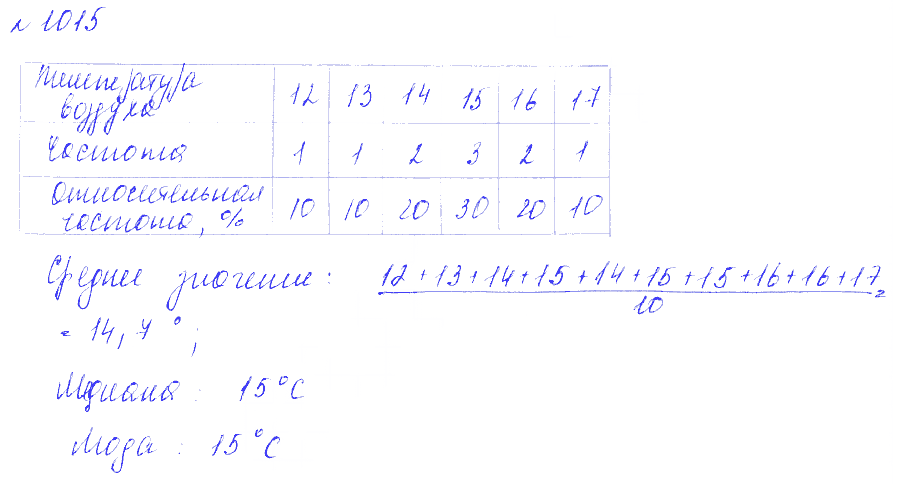 № 1015
Температура воздуха 12 13 14 15 16 17
Частота 1 1 2 3 2 1
Относительная частота, % 10 10 20 30 20 10
Среднее значение: 12+13+14+15+14+15+15+16+16+17 / 10 =
= 14,7°;
Медиана: 15°C
Мода: 15°C